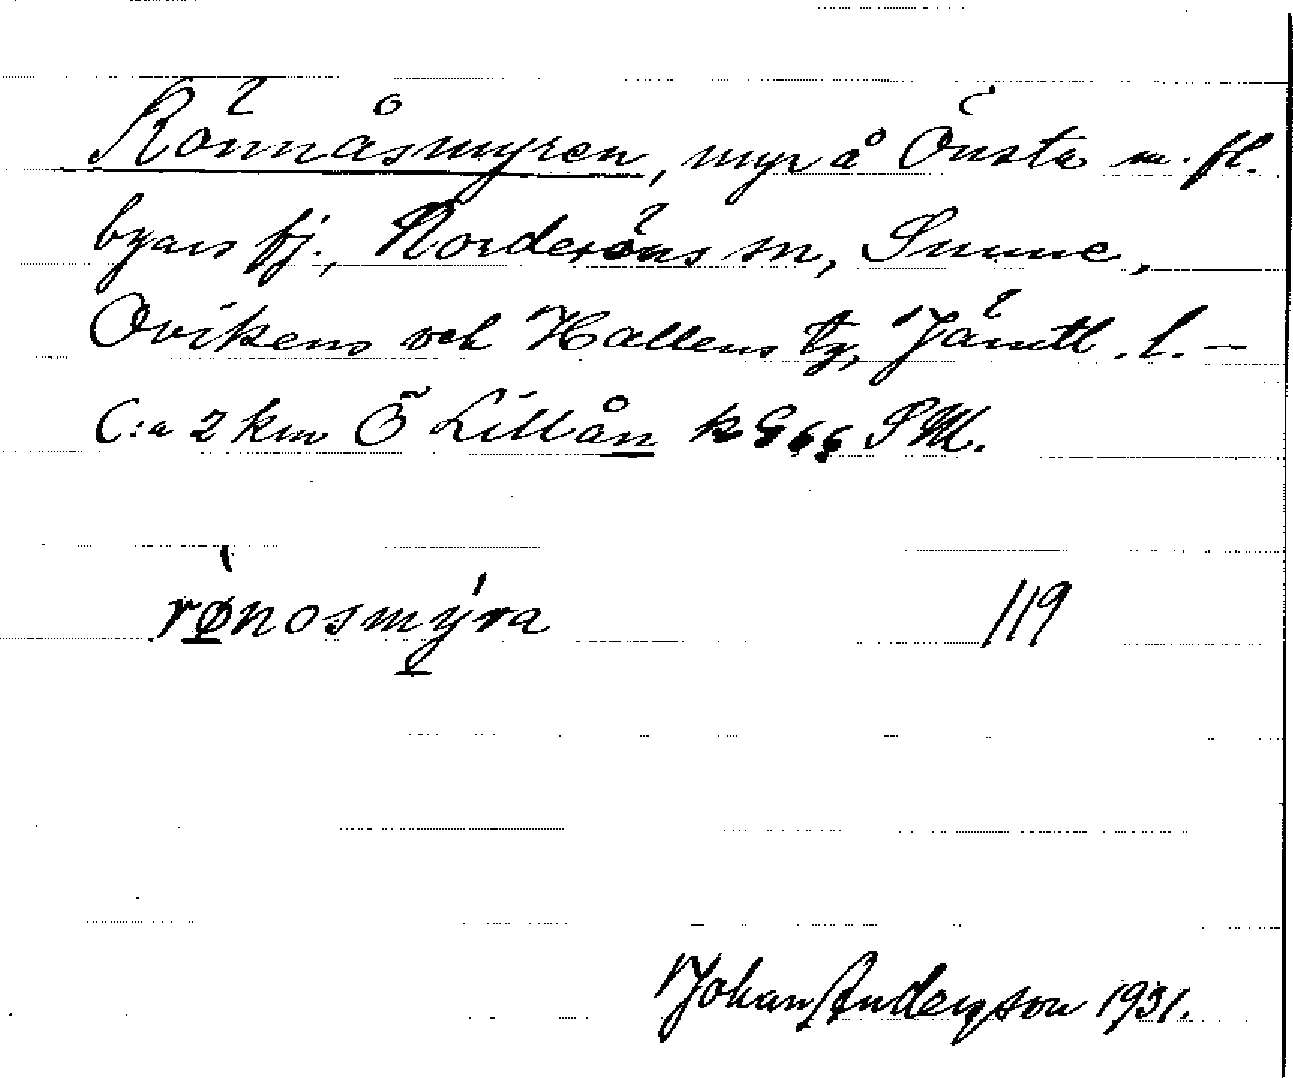 Rönnåsmyren, myr å Önsta m. fl.
byars fj., Norderöns sn, Sunne,
Ovikens och Hallens tg, Jämtl. l. –
C:a 2 km Ö Lillån k G 66 SM.
rønosmyra 119
Johan Anderson 1931.